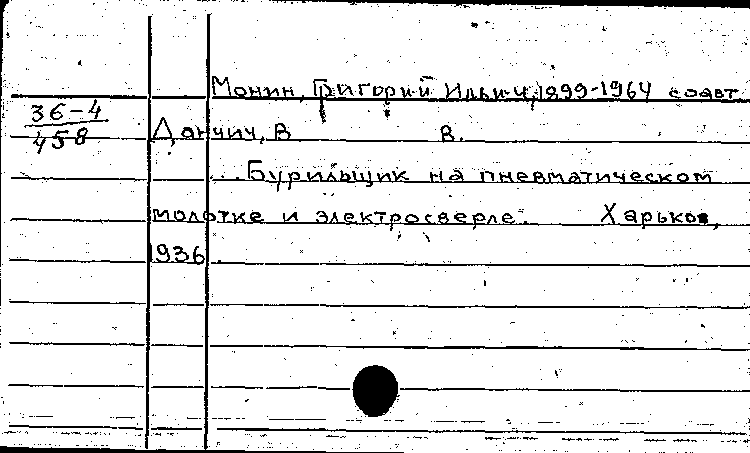 Монин, Григорий Ильич, 1899-1964 соавт.
36-4
458
Данчич, В В.
...Бурильщик на пневматическом
молотке и электросверле. Харьков,
1936.